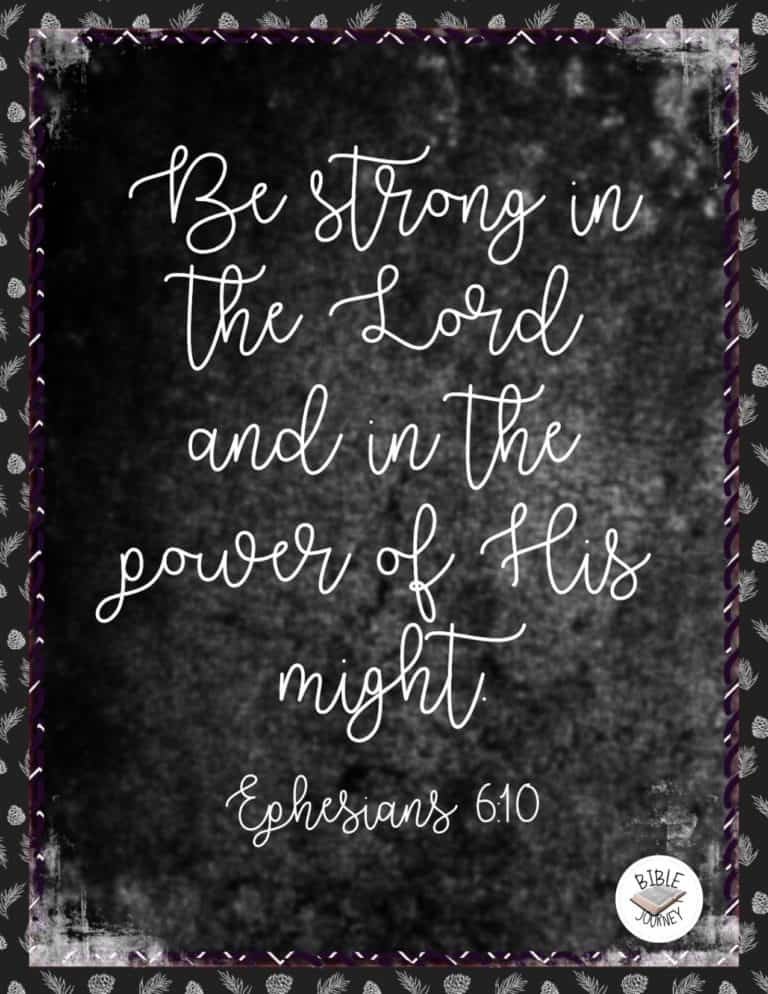 Be strong in
the Lord
and in the
power of His
might.
Ephesians 6:10
BIBLE
JOURNEY